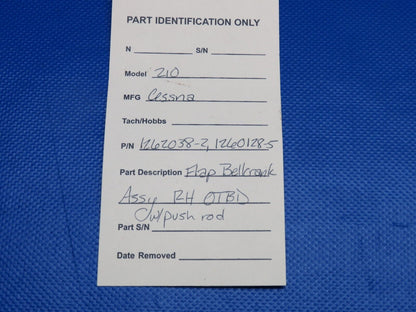 PART IDENTIFICATION ONLY
N S/N
Model 210
MFG Cessna
Tach/Hobbs
P/N 1262038-2, 1260128-5
Part Description Flap Bellcrank
Assy RH OTBD
w/push rod
Part S/N
Date Removed